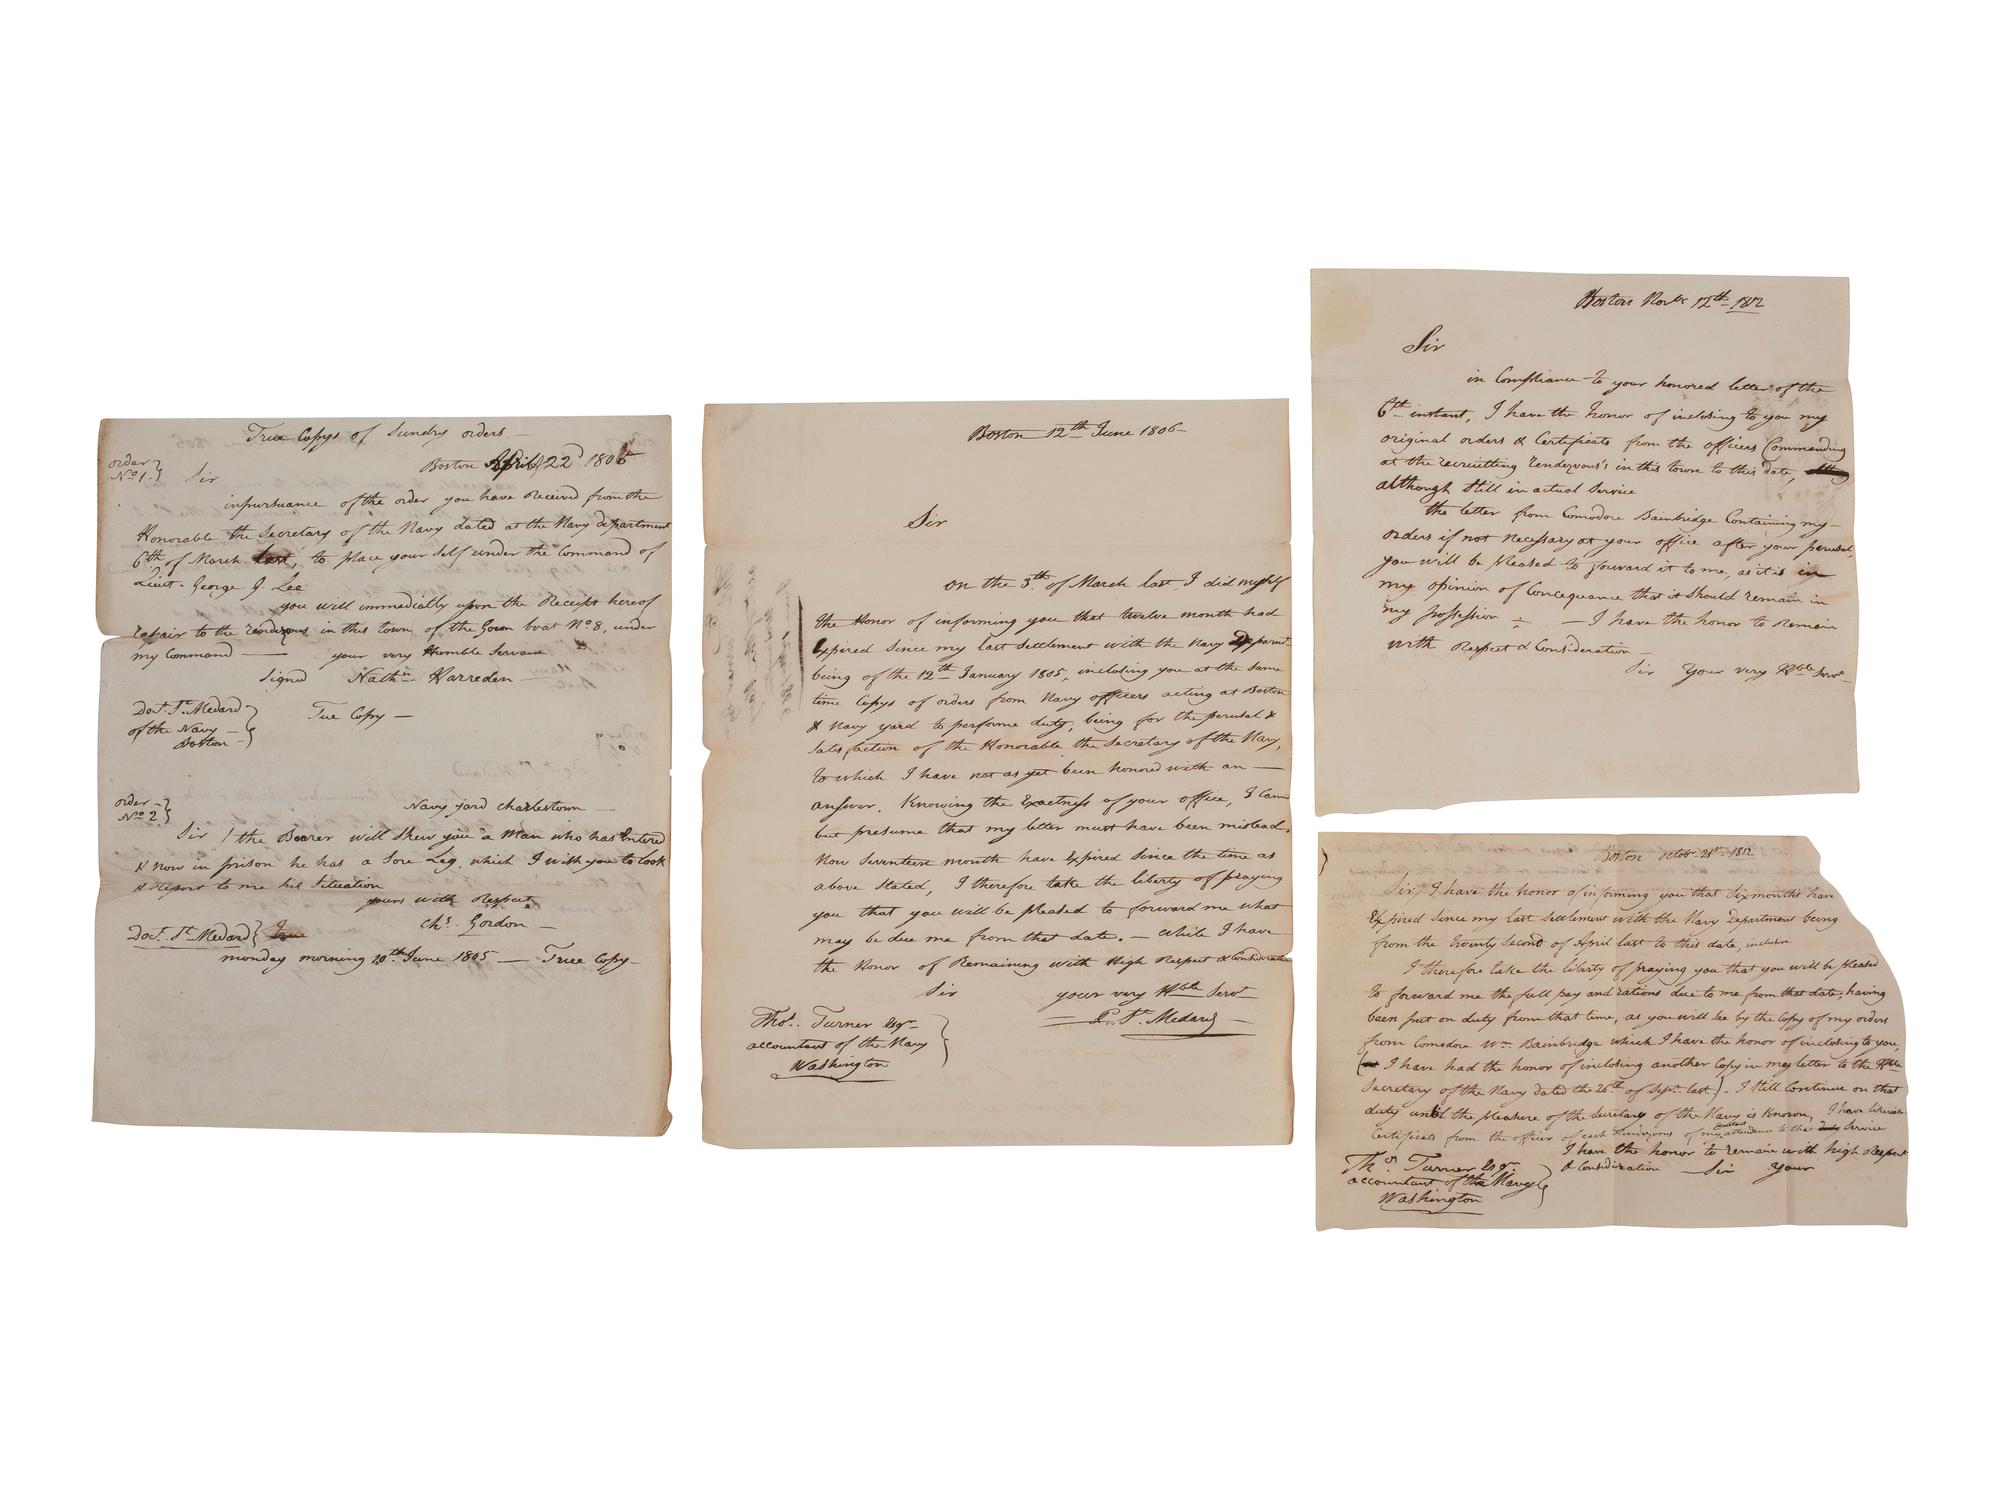 True Copys of Sundry orders
order
No 1.
Boston April 22d 1805
Sir
inpursuance of the order you have Received from the
Honorable the Secretary of the Navy dated at the Navy department
6th of March last, to place your self under the Command of
Lieut. George G. Lee
you will immedially upon the Receipt hereof
repair to the rendezvous in this town of the Goun boat No 8, under
my Command — your very Humble Servant
Signed Nathin Harreden
Doct. St. Medard
of the Navy
Boston
True Copy —
order
No 2
Navy yard charlestown
Sir / the Bearer will shew you a Man who has Entered
& now in prison he has a Sore Leg. which I wish you to look
& Report to me his Situation
yours with Respect
Chs. Gordon —
Doct. St. Medard
monday morning 10th June 1805 — True Copy
Boston 12th June 1806
Sir
on the 3th of March last I did myself
the Honor of informing you that twelve month had
Expired Since my last settlement with the Navy Departmt
being of the 12th January 1805, inclosing you at the same
time Copys of orders from Navy officers acting at Boston
& Navy yard to performe duty, being for the perusal &
Satisfaction of the Honorable the Secretary of the Navy,
to which I have not as yet been honored with an —
answer. Knowing the Exactness of your office, I Cannot
but presume that my letter must have been mislead.
Now Seventeen month have Expired Since the time as
above Stated, I therefore take the liberty of praying
you that you will be pleased to forward me what
may be due me from that date. — while I have
the Honor of Remaining with High Respect & Consideration
Sir your very Hble Servt
P. St. Medard
Thos. Turner Esqr
accountant of the Navy
Washington
Boston Novbr 12th 1812
Sir
in Compliance to your honored letter of the
6th instant, I have the honor of inclosing to you my
original orders & Certificats from the officers Commanding
at the recruitting rendezvous's in this town to this date,
although still in actual Service
the letter from Comodore Bainbridge Containing my
orders if not necessary at your office after your perusal,
you will be pleased to forward it to me, as it is in
my opinion of Concequance that it should remain in
my possession — I have the honor to remain
with Respect & Consideration
Sir Your very Hble Servt
Boston octobr 21st 1812
Sir / I have the honor of informing you that Six months have
Expired Since my last settlement with the Navy Department being
from the twenty Second of April last to this date, inclusive
I therefore take the liberty of praying you that you will be pleased
to forward me the full pay and rations due to me from that date, having
been put on duty from that time, as you will see by the Copy of my orders
from Comodore Wm. Bainbridge which I have the honor of inclosing to you,
( I have had the honor of inclosing another Copy in my letter to the Hble
Secretary of the Navy dated the 26th of Sept. last) - I still Continue on that
duty until the pleasure of the Secretary of the Navy is Known, I have likewise
Certificats from the officer of each Rendezvous of my Constant attendance to that duty Service
I have the honor to remain with high Respect
& Consideration — Sir Your
Thos. Turner Esqr.
accountant of the Navy
Washington